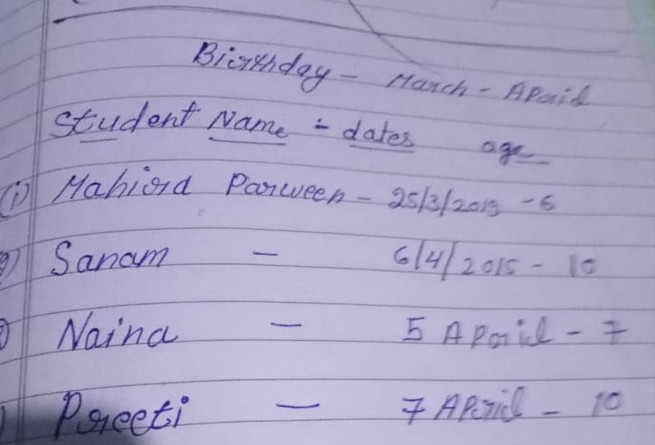 Birthday - March - April
Student Name :- dates age
(i) Mahira Parween - 25/3/2019 - 6
2) Sanam - 6/4/2015 - 10
Naina - 5 April - 7
Preeti - 7 April - 10